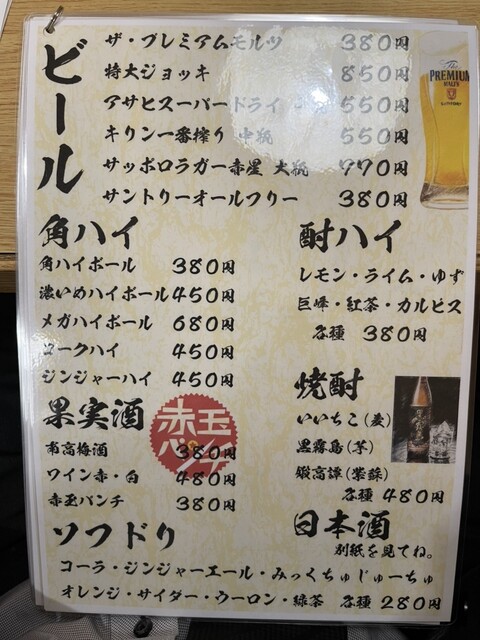 ビール
ザ・プレミアムモルツ 380円
特大ジョッキ 850円
アサヒスーパードライ 550円
キリン一番搾り 中瓶 550円
サッポロラガー赤星 大瓶 770円
サントリーオールフリー 380円
The
PREMIUM
MALT'S
SUNTORY
角ハイ
角ハイボール 380円
濃いめハイボール 450円
メガハイボール 680円
コークハイ 450円
ジンジャーハイ 450円
酎ハイ
レモン・ライム・ゆず
巨峰・紅茶・カルピス
各種 380円
果実酒
赤玉
パンチ
南高梅酒 380円
ワイン赤・白 480円
赤玉パンチ 380円
焼酎
いいちこ(麦)
黒霧島(芋)
鍛高譚(紫蘇)
各種 480円
日本酒
別紙を見てね。
ソフドリ
コーラ・ジンジャーエール・みっくちゅじゅーちゅ
オレンジ・サイダー・ウーロン・緑茶 各種 280円